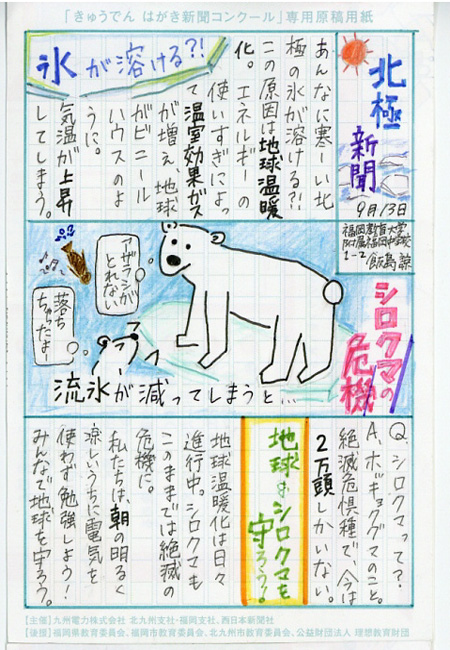 「きゅうでん はがき新聞コンクール」専用原稿用紙
北極
新聞
9月13日
福岡教育大学
附属福岡中学校
1-2 飯島 諒
氷が溶ける?!
あんなに寒ーい北
極の氷が溶ける?!
この原因は地球温暖
化。エネルギーの
使いすぎによっ
て温室効果ガス
が増え、地球
がビニール
ハウスのよ
うに。
気温が上昇
してしまう。
シロクマの
危機
アザラシが
とれない
落ち
ちゃったよー
流氷が減ってしまうと…
Q、シロクマって?
A、ホッキョクグマのこと。
絶滅危惧種で、今は
2万頭しかいない。
地球もシロクマも
守ろう!
地球温暖化は日々
進行中。シロクマも
このままでは絶滅の
危機に。
私たちは、朝の明るく
涼しいうちに電気を
使わず勉強しよう!
みんなで地球を守ろう。
[主催] 九州電力株式会社 北九州支社・福岡支社、西日本新聞社
[後援] 福岡県教育委員会、福岡市教育委員会、北九州市教育委員会、公益財団法人 理想教育財団